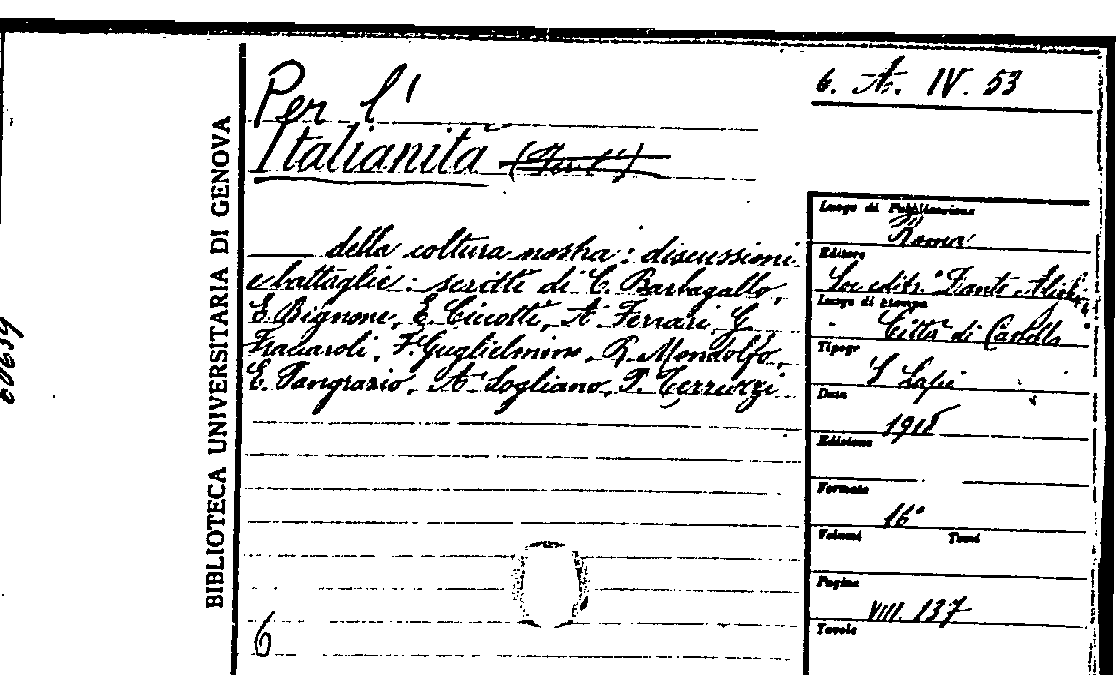 Per l'
Italianità
6. A. IV. 53
della coltura nostra: discussioni
e battaglie: scritti di C. Barbagallo,
E. Bignone, E. Ciccotti, A. Ferrari, G.
Fraccaroli, F. Guglielmino, R. Mondolfo,
E. Pangrazio, A. Sogliano, T. Terruzzi
Luogo di Pubblicazione
Roma
Editore
Soc editr "Dante Alighi
Luogo di stampa
Città di Castello
Tipogr
S. Lapi
Data
1918
Edizione
Formato
16°
Volumi Tomi
Pagine
VIII. 137
Tavole
BIBLIOTECA UNIVERSITARIA DI GENOVA
6